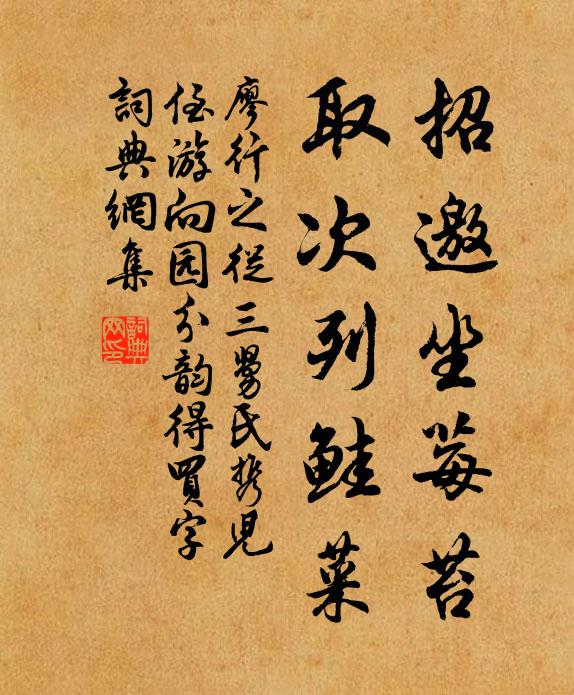 招邀坐莓苔
取次列鮭菜
廖行之從三舅氏携兒
侄游向园分韵得買字
詞典網集
詞典网印